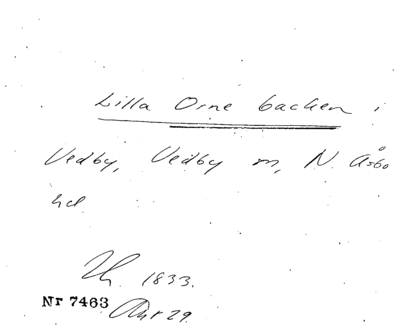 Lilla Orne backen i
Vedby, Vedby sn, N. Åsbo
hd
1833.
Nr 7463
29.